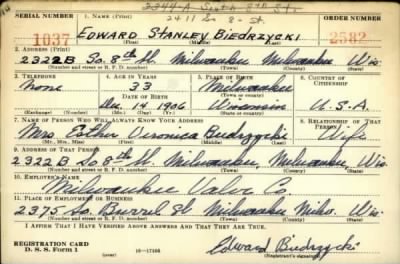 2344-A South 8th St.
2411 So 8- St.
SERIAL NUMBER 1. NAME (Print) ORDER NUMBER
1037 EDWARD STANLEY BIEDRZYCKI 2582
(First) (Middle) (Last)
2. ADDRESS (Print)
2322B So. 8th St. Milwaukee Milwaukee Wis.
(Number and street or R. F. D. number) (Town) (County) (State)
3. TELEPHONE 4. AGE IN YEARS 5. PLACE OF BIRTH 6. COUNTRY OF CITIZENSHIP
None 33 Milwaukee
DATE OF BIRTH (Town or county)
Dec. 14 1906 Wisconsin U.S.A.
(Exchange) (Number) (Mo.) (Day) (Yr.) (State or country)
7. NAME OF PERSON WHO WILL ALWAYS KNOW YOUR ADDRESS 8. RELATIONSHIP OF THAT PERSON
Mrs. Esther Veronica Biedrzycki Wife
(Mr., Mrs., Miss) (First) (Middle) (Last)
9. ADDRESS OF THAT PERSON
2322B So 8th St. Milwaukee, Milwaukee, Wis
(Number and street or R. F. D. number) (Town) (County) (State)
10. EMPLOYER'S NAME
Milwaukee Valve Co.
11. PLACE OF EMPLOYMENT OR BUSINESS
2375 So. Burrel St Milwaukee, Wis.
(Number and street or R. F. D. number) (Town) (County) (State)
I AFFIRM THAT I HAVE VERIFIED ABOVE ANSWERS AND THAT THEY ARE TRUE.
REGISTRATION CARD
D. S. S. Form 1 (over) 16-17105 Edward Biedrzycki
(Registrant's signature)